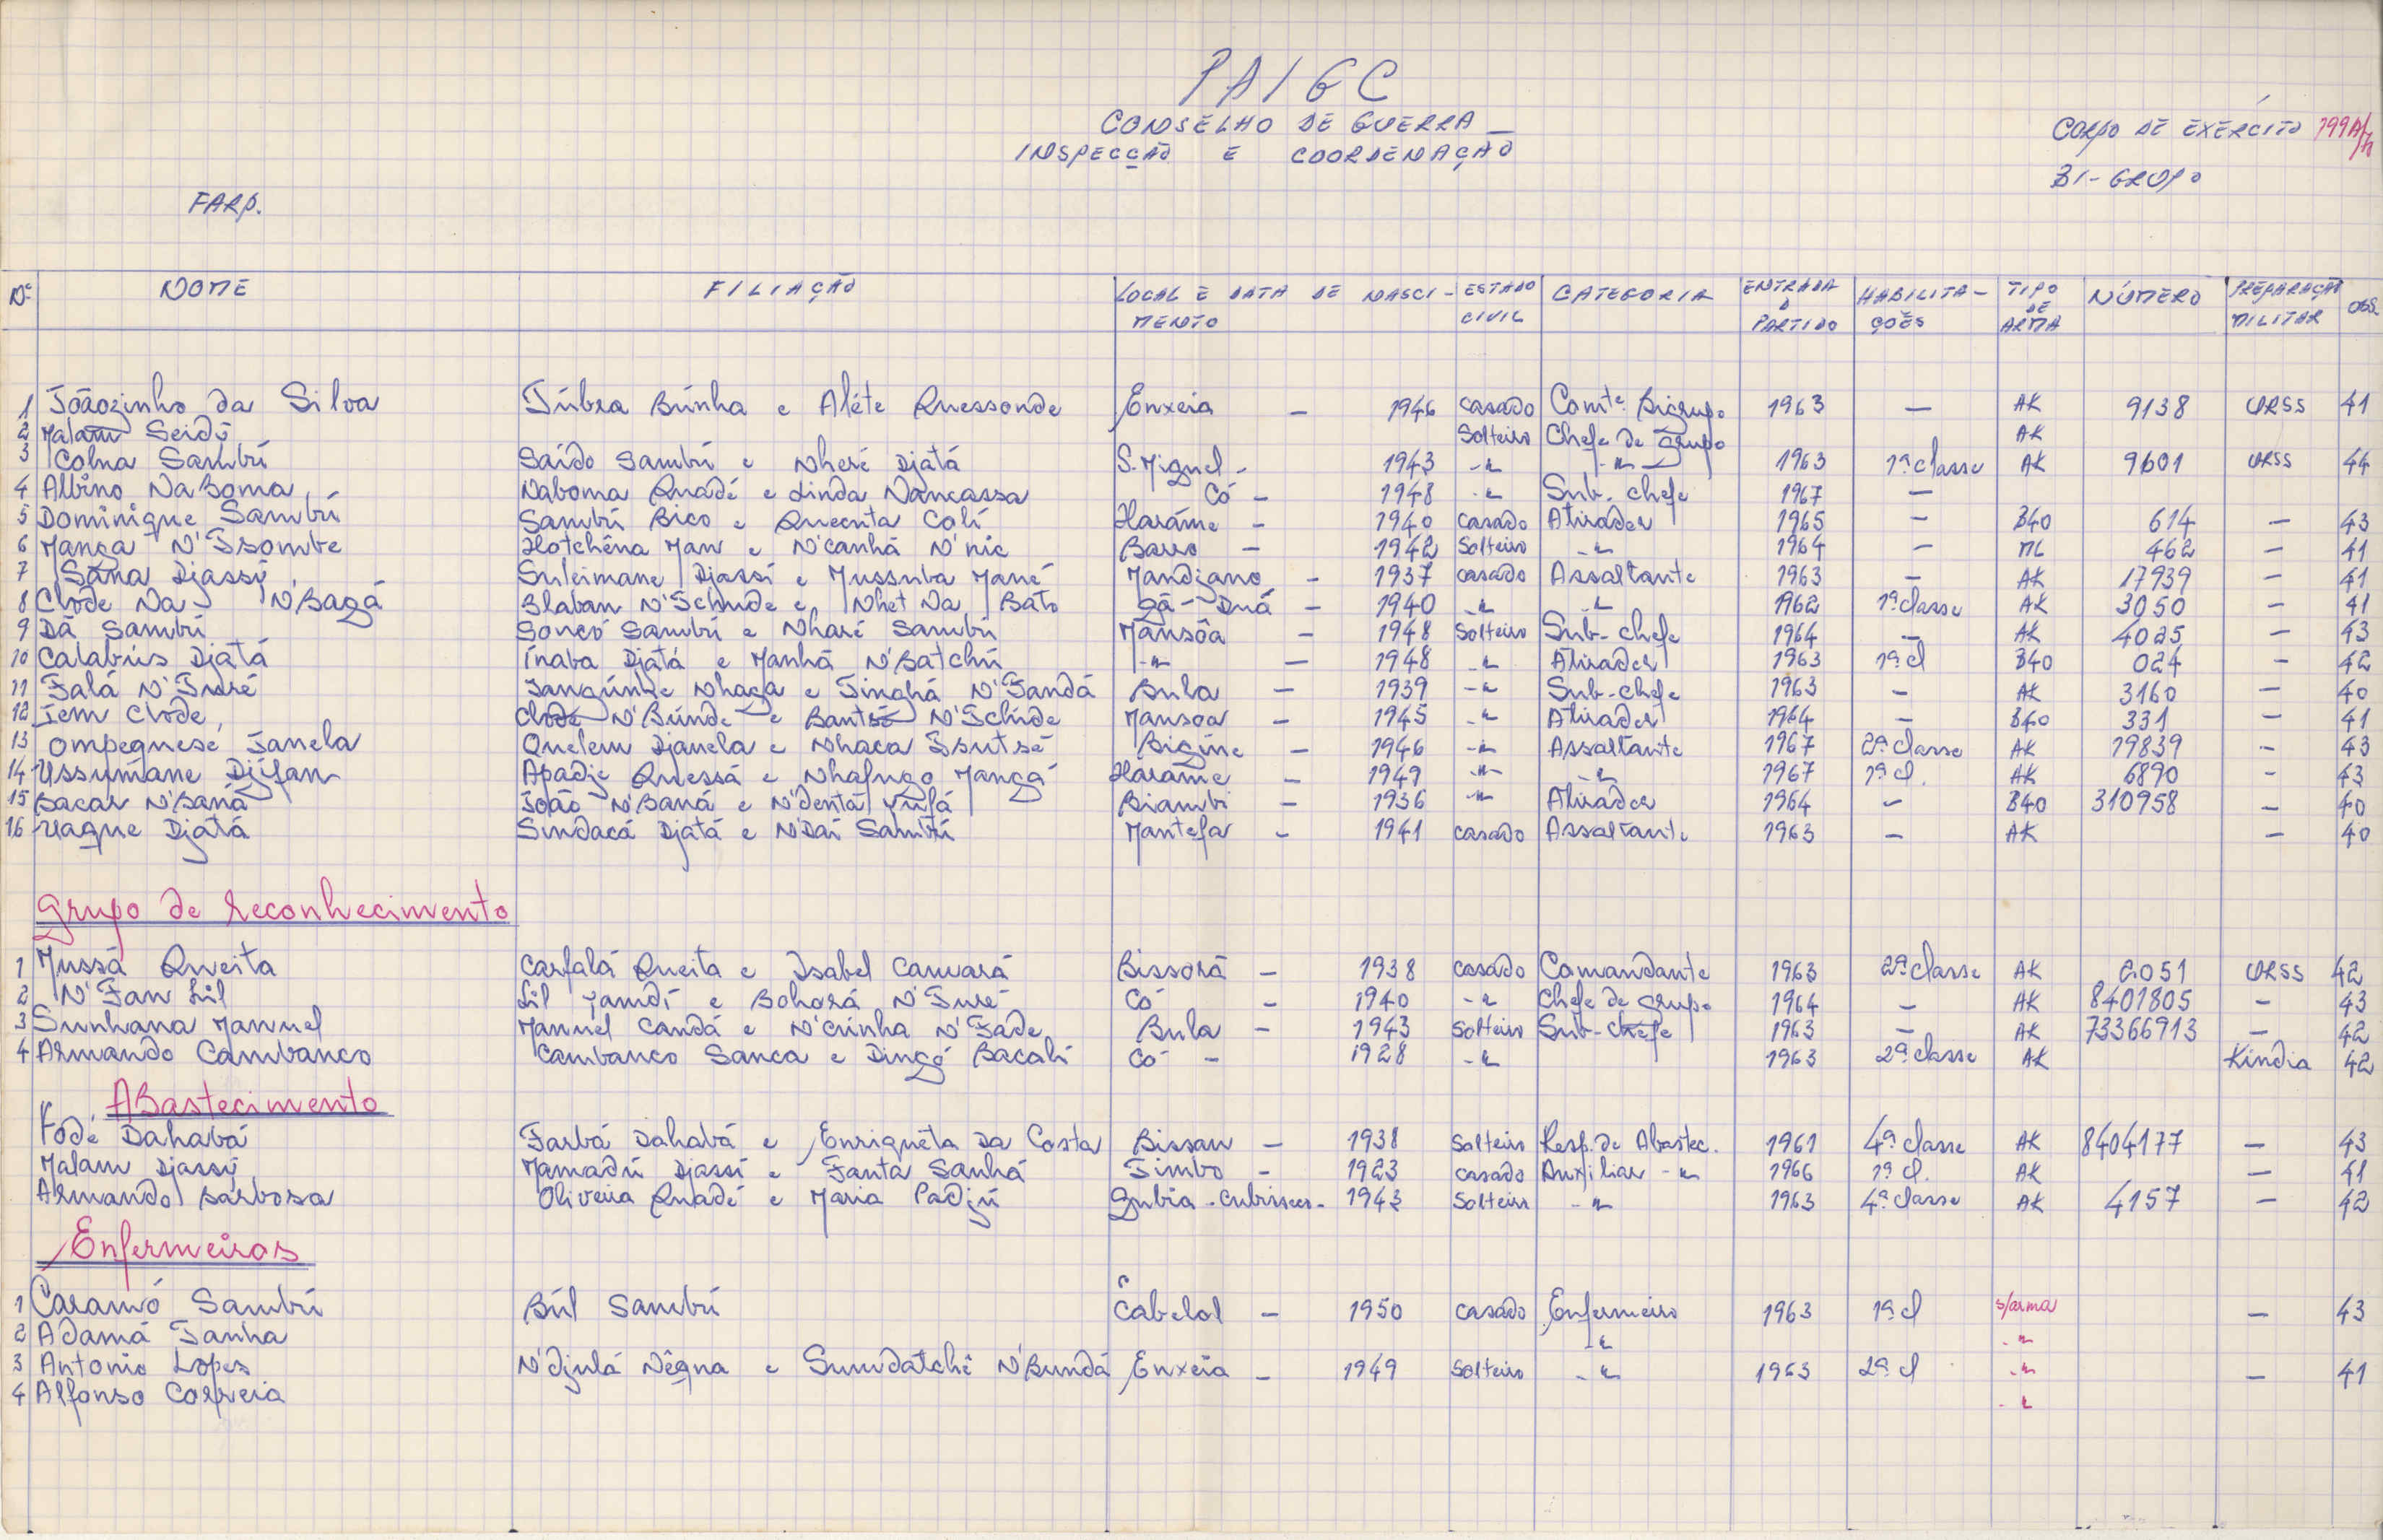 PAIGC
CONSELHO DE GUERRA
INSPECÇÃO E COORDENAÇÃO
CORPO DE EXÉRCITO 199A/
BI-GRUPO
FARP.
Nº NOME FILIAÇÃO LOCAL E DATA DE NASCI-MENTO ESTADO CIVIL CATEGORIA ENTRADA P PARTIDO HABILITA-ÇÕES TIPO DE ARMA NÚMERO PREPARAÇÃO MILITAR OBS.
1 Joãozinho da Silva Túbra Búnha e Aléte Quessonde Enxeia – 1946 casado Comte. Bigrupo 1963 – AK 9138 URSS 41
2 Malam Seidi Solteiro Chefe de grupo AK
3 Colna Sambú Saído Sambú e Nheré Djatá S. Miguel - 1943 -"- -"- 1963 1ª classe AK 9601 URSS 44
4 Albino Na Boma Naboma Quadé e Linda Nancassa Có - 1948 -"- Sub-chefe 1967 –
5 Dominique Sambú Sambú Bico e Quecuta Colí Haráme - 1940 casado Atirador 1965 – B40 614 – 43
6 Manga N'Tsombe Hotchêna Man e N'canhá N'nic Barro – 1942 Solteiro -"- 1964 – ML 462 – 41
7 Sana Djassy Suleimane Djassí e Mussuba Mané Mandjano - 1937 casado Assaltante 1963 – AK 17939 – 41
8 Clode Na N'Bagá Blaban N'Tchude e Nhet Na Bato Gã-Duá - 1940 -"- -"- 1962 1ª classe AK 3050 – 41
9 Dã Sambú Soncó Sambú e Nharé Sambú Mansôa – 1948 Solteiro Sub-chefe 1964 – AK 4025 – 43
10 Calabús Djatá Ínaba Djatá e Manhã N'Batchú -"- – 1948 -"- Atirador 1963 1ª cl B40 024 – 42
11 Falá N'Turé Tangúnhe Nhaga e Tinghá N'Tandá Bula – 1939 -"- Sub-chefe 1963 – AK 3160 – 40
12 Iem Clode Clode N'Búnde e Bantsó N'Tchíde Mansoa – 1945 -"- Atirador 1964 – B40 331 – 41
13 Ompeguesé Janela Quelem Djanela e Nhaca Tsutsé Bigine – 1946 -"- Assaltante 1967 2ª classe AK 19839 – 43
14 Ussumane Djifan Apadje Quessá e Nhafugo Mangá Harame – 1949 -"- -"- 1967 1ª cl. AK 6890 – 43
15 Bacar N'Baná João N'Baná e N'dentá Yufá Biambi – 1936 -"- Atirador 1964 – B40 310958 – 40
16 Uaque Djatá Sundacá Djatá e N'Daí Sambú Mantefa – 1941 casado Assaltante 1963 – AK – 40
Grupo de reconhecimento
1 Mussá Queita Carfalá Queita e Isabel Camará Bissorã – 1938 casado Comandante 1963 2ª classe AK 2051 URSS 42
2 N'Fan Lil Lil Yamdí e Bohorá N'Turé Có – 1940 -"- Chefe de grupo 1964 – AK 8401805 – 43
3 Sunhana Manuel Manuel Candá e N'cuinha N'Fade Bula – 1943 Solteiro Sub-chefe 1963 – AK 73366913 – 42
4 Armando Cambanco Cambanco Sanca e Dingó Bacali Có – 1928 -"- 1963 2ª classe AK Kindia 42
Abastecimento
Fodé Dahabá Farbá Dahabá e Enriquêta da Costa Bissau – 1938 Solteiro Resp. de Abastec. 1961 4ª classe AK 8404177 – 43
Malam Djassy Mamadú Djassí e Fanta Sanhá Timbo – 1923 casado Auxiliar -"- 1966 1ª cl. AK – 41
Armando Barbosa Oliveira Quadé e Maria Padjú Gubia - Cubisseco - 1943 Solteiro -"- 1963 4ª classe AK 4157 – 42
Enfermeiros
1 Caramó Sambú Búl Sambú Cabelol – 1950 casado Enfermeiro 1963 1ª cl s/arma – 43
2 Adamá Tanha -"- -"-
3 Antonio Lopes N'djulá Nêgna e Sumdatchê N'Bundá Enxeia – 1949 Solteiro -"- 1963 2ª cl -"- – 41
4 Alfonso Correia -"-